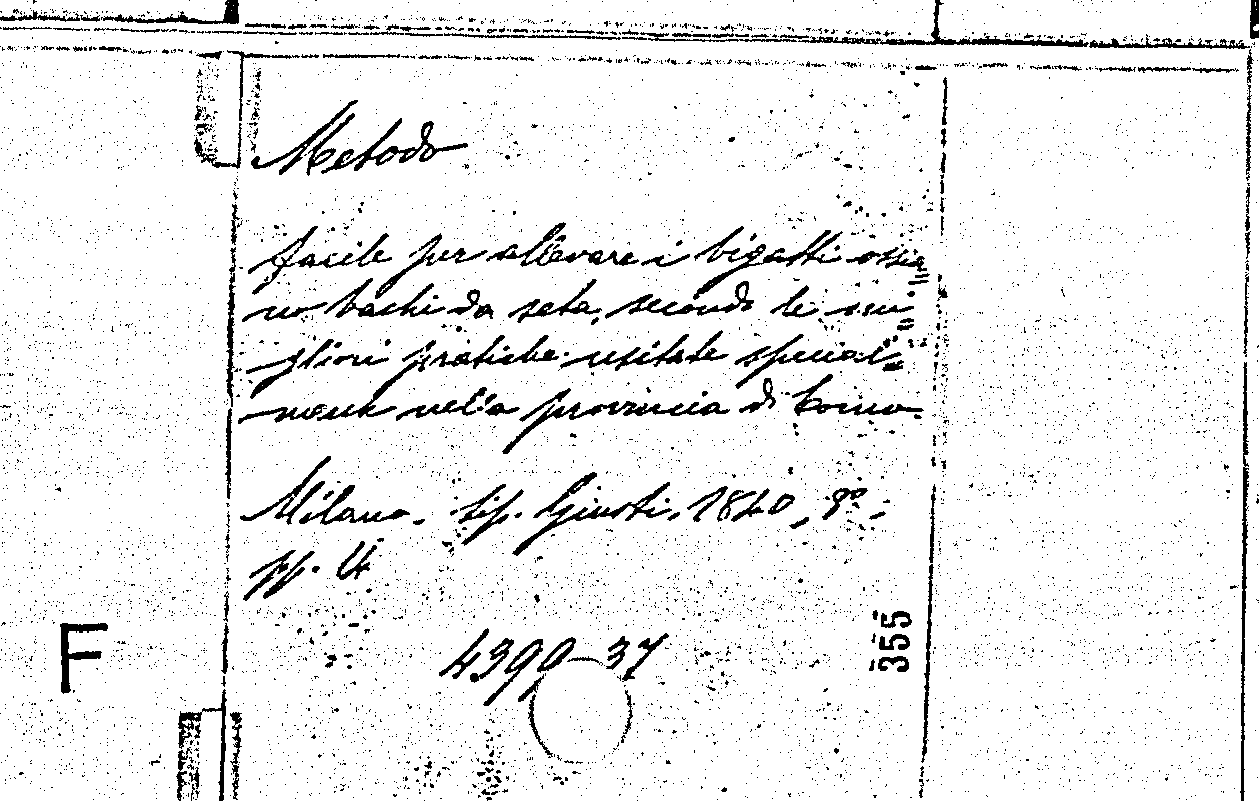 Metodo
facile per allevare i bigatti ossia
no bachi da seta, secondo le mi
gliori pratiche usitate special=
mente nella provincia di Como.
Milano. tip. Giusti. 1840, 8°,
pp. 4
4390 37
355
F